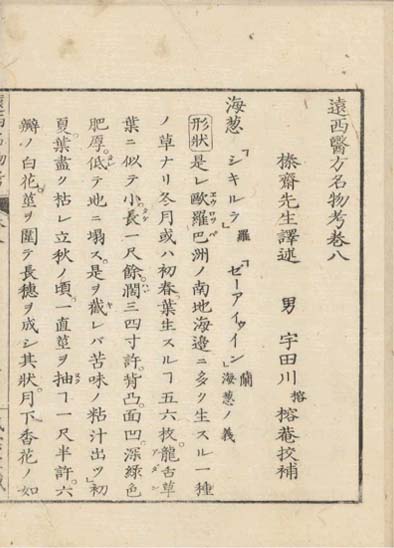 遠西醫方名物考卷八
榛齋先生譯述 男 宇田川榕 榕菴挍補
海葱 「シキルラ」羅 「ゼーアイウイン」蘭 海葱ノ義
形状 是レ歐羅巴洲ノ南地海邉ニ多ク生スル一種 エウロッパ
ノ草ナリ冬月或ハ初春葉生スルヿ五六枚龍舌草
葉ニ似テ小長一尺餘濶三四寸許背凸面凹深緑色
肥厚低テ地ニ塌ス是ヲ截レバ苦味ノ粘汁出ツ初
夏葉盡ク枯レ立秋ノ頃一直莖ヲ抽ヿ一尺半許六
瓣ノ白花莖ヲ圍テ長穗ヲ成シ其状月下香花ノ如